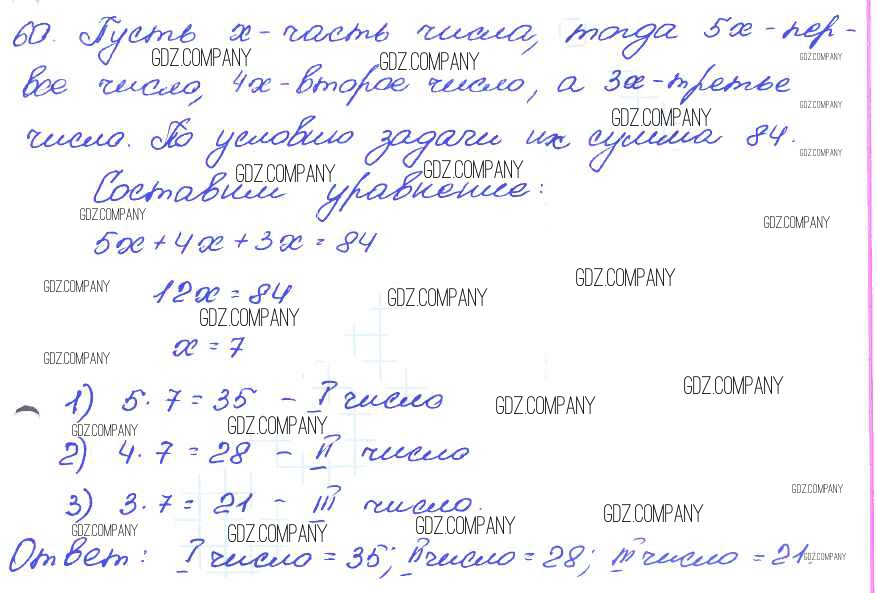 60. Пусть x - часть числа, тогда 5x - пер-
GDZ.COMPANY GDZ.COMPANY GDZ.COMPANY
вое число, 4x - второе число, а 3x - третье
GDZ.COMPANY GDZ.COMPANY
число. По условию задачи их сумма 84.
GDZ.COMPANY GDZ.COMPANY GDZ.COMPANY
Составим уравнение:
GDZ.COMPANY GDZ.COMPANY
5x + 4x + 3x = 84
GDZ.COMPANY GDZ.COMPANY GDZ.COMPANY
12x = 84
GDZ.COMPANY
x = 7
GDZ.COMPANY GDZ.COMPANY
1) 5 · 7 = 35 - I число
GDZ.COMPANY GDZ.COMPANY GDZ.COMPANY
2) 4 · 7 = 28 - II число
GDZ.COMPANY
3) 3 · 7 = 21 - III число.
GDZ.COMPANY GDZ.COMPANY GDZ.COMPANY GDZ.COMPANY
Ответ: I число = 35; II число = 28; III число = 21.
GDZ.COMPANY